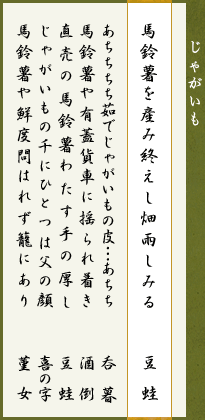 じゃがいも
馬鈴薯を産み終えし畑雨しみる 豆蛙
あちちち茹でじゃがいもの皮…あちち 呑暮
馬鈴薯や有蓋貨車に揺られ着き 酒倒
直売の馬鈴薯わたす手の厚し 豆蛙
じゃがいもの千にひとつは父の顔 喜の字
馬鈴薯や鮮度問はれず籠にあり 菫女